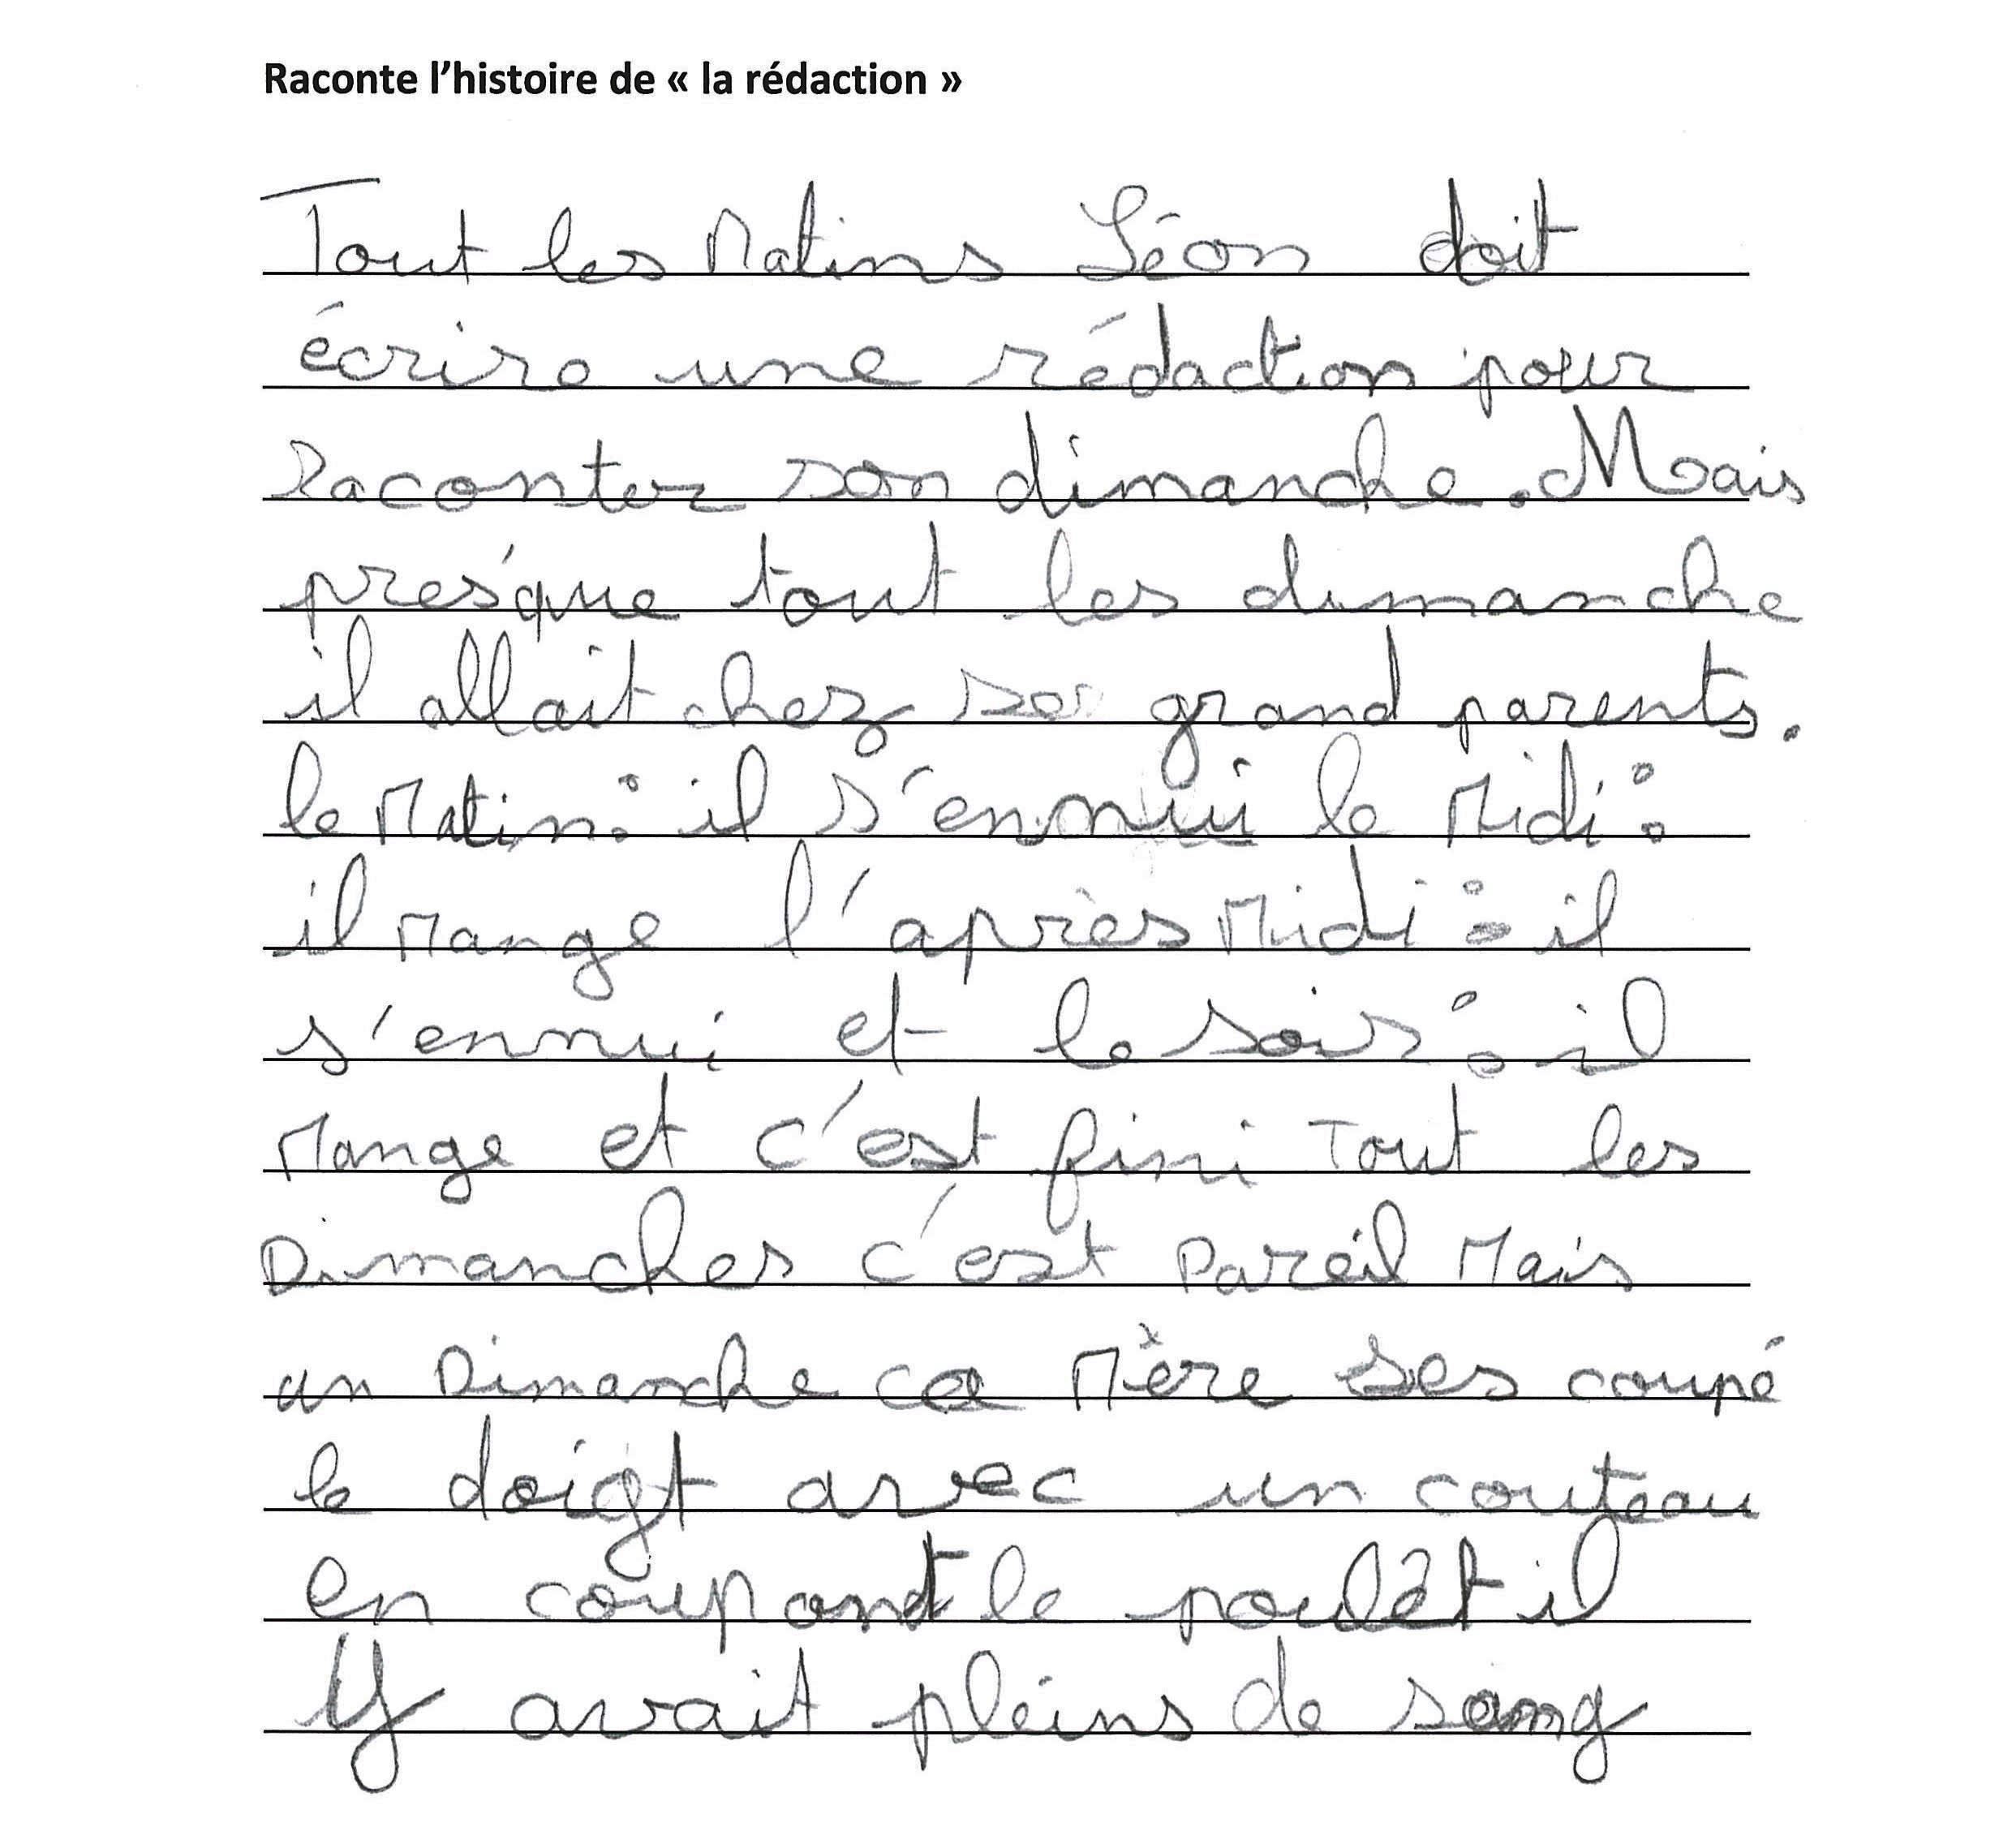 Raconte l'histoire de « la rédaction »
Tout les Matins Léon doit
écrire une rédaction pour
Raconter son dimanche. Mais
présque tout les dimanche
il allait chez ses grand parents.
le Matin : il s'ennui le Midi :
il Mange l'après Midi : il
s'ennui et le soir : il
Mange et c'est fini Tout les
Dimanches c'est Pareil Mais
un Dimanche ca Mère ses coupé
le doigt avec un couteau
en coupant le poulét il
Y avait pleins de sang